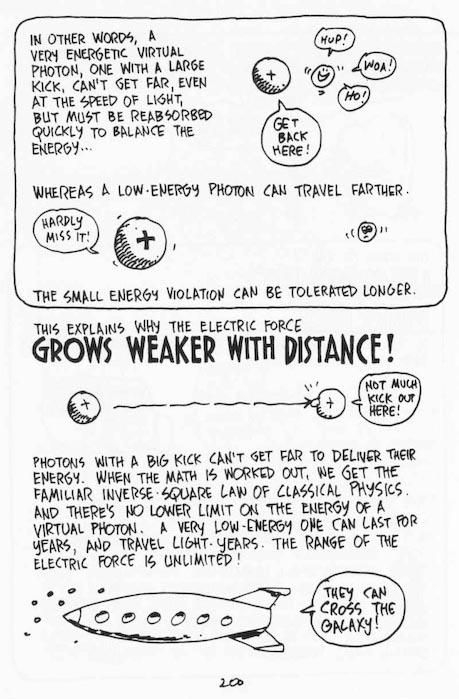 IN OTHER WORDS, A
VERY ENERGETIC VIRTUAL
PHOTON, ONE WITH A LARGE
KICK, CAN'T GET FAR, EVEN
AT THE SPEED OF LIGHT,
BUT MUST BE REABSORBED
QUICKLY TO BALANCE THE
ENERGY...
HUP!
WOA!
HO!
+
GET
BACK
HERE!
WHEREAS A LOW-ENERGY PHOTON CAN TRAVEL FARTHER.
HARDLY
MISS IT!
+
THE SMALL ENERGY VIOLATION CAN BE TOLERATED LONGER.
THIS EXPLAINS WHY THE ELECTRIC FORCE
GROWS WEAKER WITH DISTANCE!
+
+
NOT MUCH
KICK OUT
HERE!
PHOTONS WITH A BIG KICK CAN'T GET FAR TO DELIVER THEIR
ENERGY. WHEN THE MATH IS WORKED OUT, WE GET THE
FAMILIAR INVERSE-SQUARE LAW OF CLASSICAL PHYSICS.
AND THERE'S NO LOWER LIMIT ON THE ENERGY OF A
VIRTUAL PHOTON. A VERY LOW-ENERGY ONE CAN LAST FOR
YEARS, AND TRAVEL LIGHT-YEARS. THE RANGE OF THE
ELECTRIC FORCE IS UNLIMITED!
THEY CAN
CROSS THE
GALAXY!
200